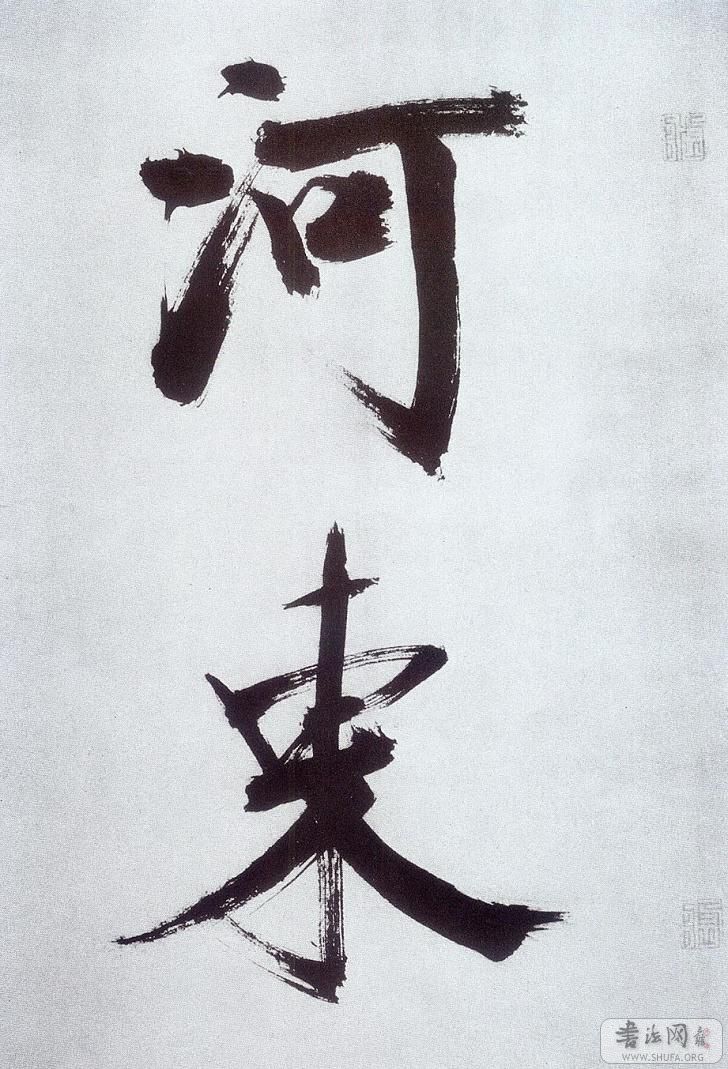 河東
书法网
WWW.SHUFA.ORG